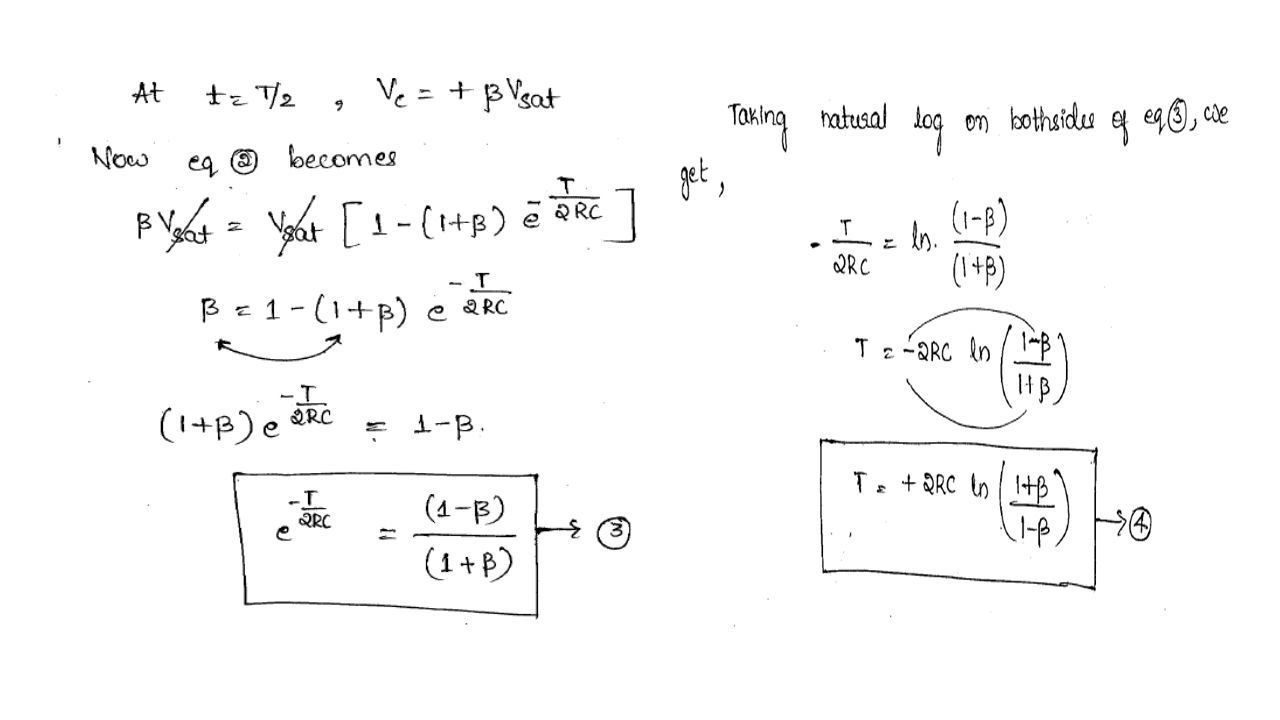 At t = T/2 , Vc = + βVsat
Now eq ② becomes
βVsat = Vsat [ 1 - (1+β) e^-T/2RC ]
β = 1 - (1+β) e^-T/2RC
(1+β) e^-T/2RC = 1-β.
e^-T/2RC = (1-β)/(1+β) → ③
Taking natural log on bothsides of eq③, we
get ,
- T/2RC = ln. (1-β)/(1+β)
T = -2RC ln (1-β/1+β)
T = + 2RC ln (1+β/1-β) → ④